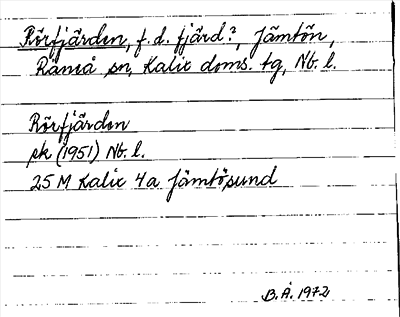 Rörfjärden, f.d. fjärd?, Jämtön,
Råneå sn, Kalix doms. tg, Nb. l.
Rörfjärden
sk (1951) Nb. l.
25 M Kalix 4a Jämtösund
B.Å. 1972